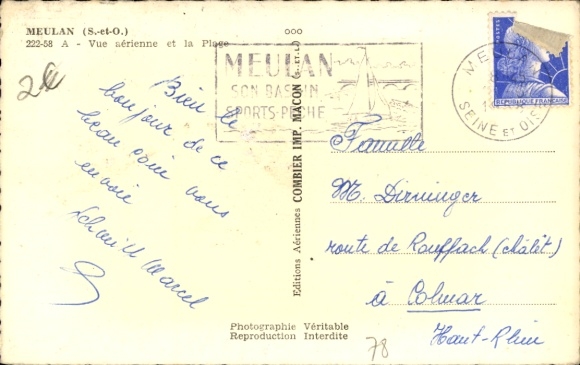 MEULAN (S.-et-O.)
222-58 A - Vue aérienne et la Plage
2€
Bien le
bonjour de ce
beau coin vous
envoie
Schmitt Marcel
Editions Aériennes COMBIER IMP. MACON (S.-ET-L.)
MEULAN
SON BASSIN
SPORTS-PECHE
MEULAN
SEINE ET OISE
POSTES
REPUBLIQUE FRANÇAISE
Famille
M. Dirninger
route de Rouffach (châlet)
à Colmar
Haut-Rhin
Photographie Véritable
Reproduction Interdite
78